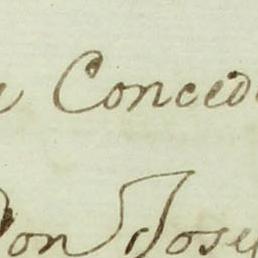 Conced
Don Jose